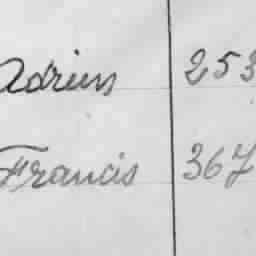 Adrien 253
Francis 367